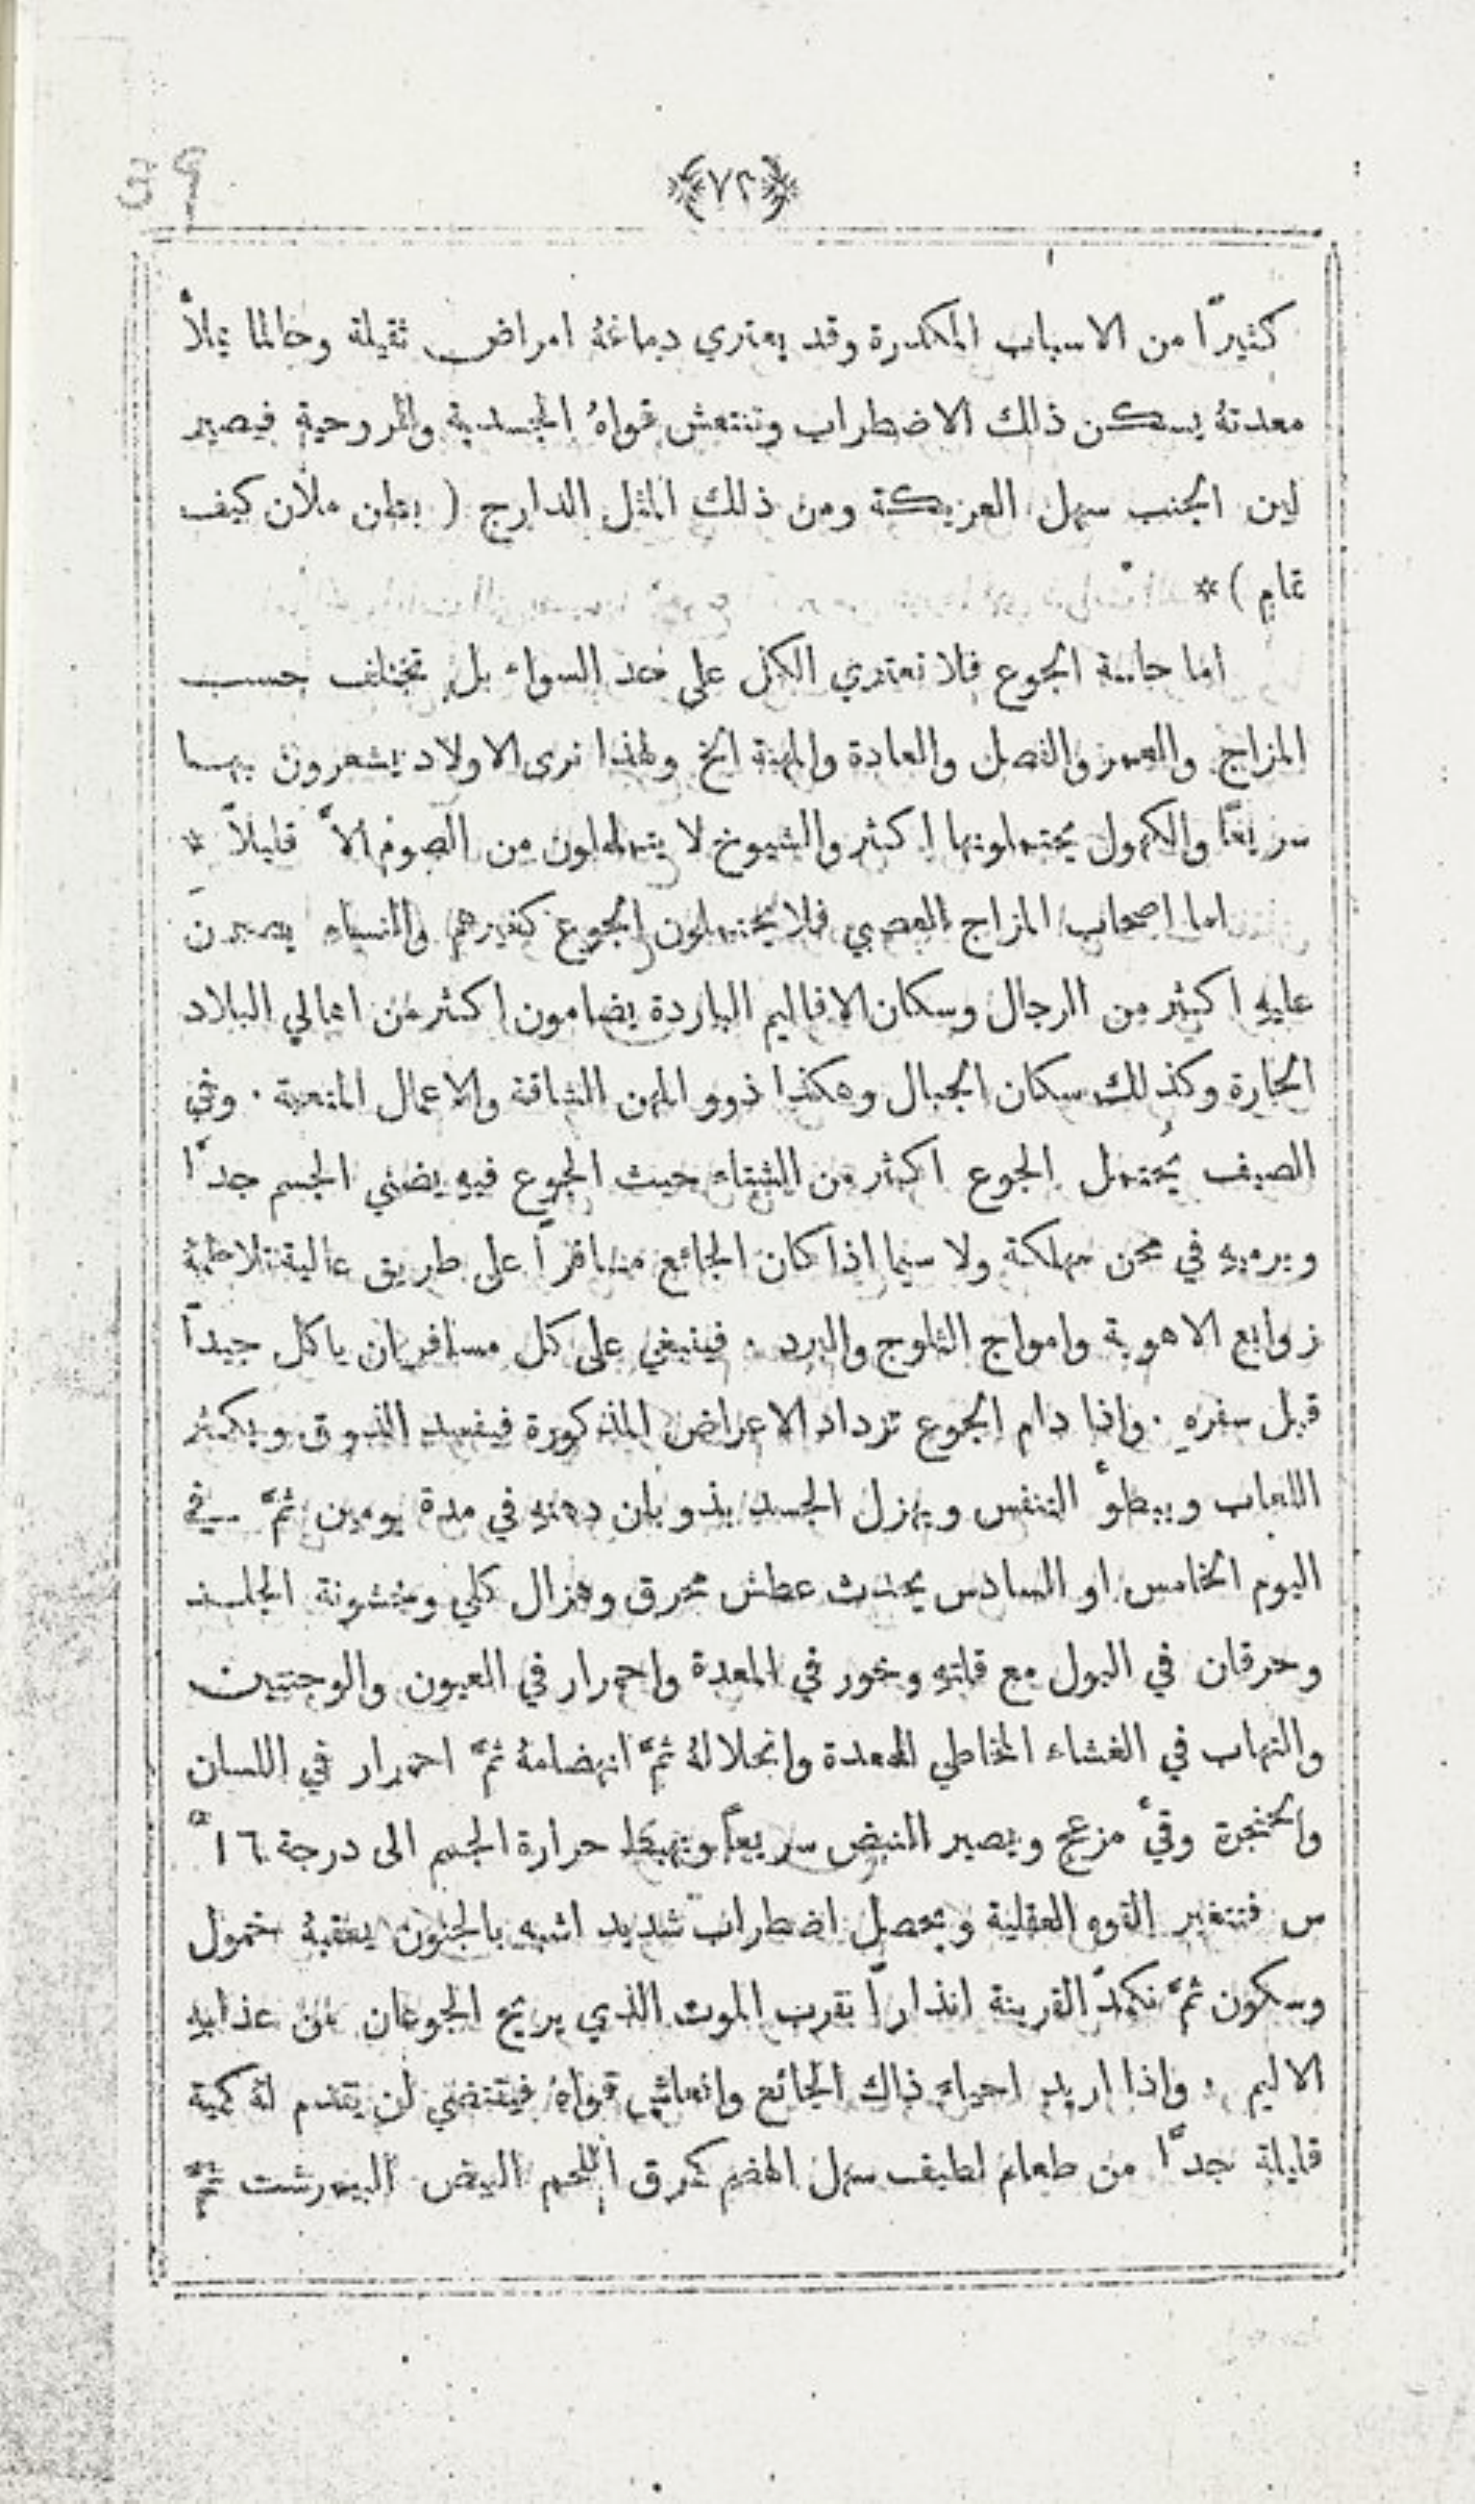 39
﴿٧٢﴾
كثيرًا من الاسباب المكدرة وقد يعتري دماغهُ امراض ثقيلة وحالما تملأ
معدتهُ يسكن ذلك الاضطراب وتنتعش قواهُ الجسدية والروحية فيصير
لين الجنب سهل العريكة ومن ذلك المثل الدارج ( بطن ملآن كيف
تمام ) *
اما حاسة الجوع فلا تعتري الكل على حد السواء بل تختلف حسب
المزاج والعمر والفصل والعادة والمهنة الخ ولهذا نرى الاولاد يشعرون بهـا
سريعًا والكهول يحتملونها اكثر والشيوخ لا يتململون من الصوم الاَّ قليلاً *
اما اصحاب المزاج العصبي فلا يحتملون الجوع كغيرهم والنساء يصبرنَ
عليهِ اكثر من الرجال وسكان الاقاليم الباردة يضامون اكثر من اهالي البلاد
الحارة وكذلك سكان الجبال وهكذا ذوو المهن الشاقة والاعمال المتعبة . وفي
الصيف يُحتمل الجوع اكثر من الشتاء حيث الجوع فيهِ يضني الجسم جدًّا
ويرميهِ في محن مهلكة ولا سيما اذا كان الجائع مسافرًا على طريق عالية تلاطمهُ
زوابع الاهوية وامواج الثلوج والبرد . فينبغي على كل مسافر ان ياكل جيدًا
قبل سفرهِ . واذا دام الجوع تزداد الاعراض المذكورة فيفسد الذوق ويكثر
اللعاب ويبطوُّ التنفس ويهزل الجسد بذوبان دهنهِ في مدة يومين ثمَّ في
اليوم الخامس او السادس يحدث عطش محرق وهزال كلي وخشونة الجلـد
وحرقان في البول مع قلتهِ وخور في المعدة واحمرار في العيون والوجنتين
والتهاب في الغشاء المخاطي للمعدة وانحلالهُ ثمَّ انهضامهُ ثمَّ احمرار في اللسان
والحنجرة وقيءٌ مزعج ويصير النبض سريعاً وتهبط حرارة الجسم الى درجة ١٦ً
س فتتغير القوه العقلية ويحصل اضطراب شديد اشبه بالجنون يعقبهُ خمول
وسكون ثمَّ تكمدّ القرينة انذارًا بقرب الموت الذي يريح الجوعان من عذابهِ
الاليم . واذا اريد احياء ذاك الجائع وانعاش قواهُ فيقتضي ان يقدم لهُ كمية
قليلة جدًّا من طعام لطيف سهل الهضم كمرق اللحم البيض البيمرشت ثمَّ